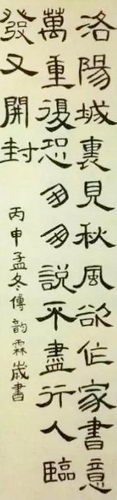 洛陽城裏見秋風欲作家書意
萬重復恐匆匆説不盡行人臨
發又開封
丙申孟冬傅韵霖嵗書